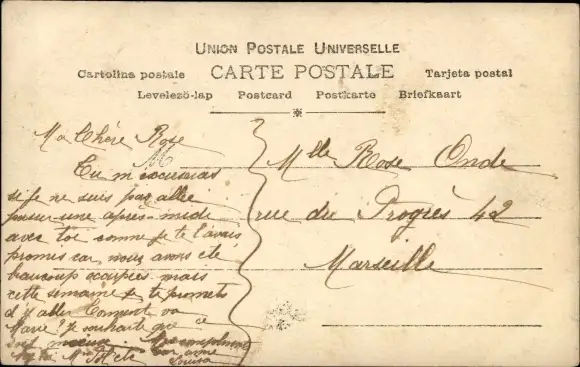 UNION POSTALE UNIVERSELLE
Cartolina postale CARTE POSTALE Tarjeta postal
Levelező-lap Postcard Postkarto Briefkaart
Ma Chère Rose
Tu m'excuseras
si je ne suis pas allée
passer une après-midi
avec toi comme je te l'avais
promis car nous avons été
beaucoup occupées mais
cette semaine je te promets
d'y aller Comment va
Marie? Je souhaite que ce
soit mieux.
ton amie
Louisa
Mlle Rose Onde
rue du Progrès 42
Marseille